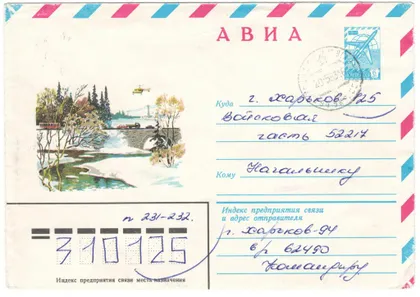 АВИА
Куда г. Харьков-125
Войсковая
часть 52217
Кому Начальнику
п 231-232.
310125
Индекс предприятия связи места назначения
Индекс предприятия связи
и адрес отправителя
г. Харьков-94
в/ 62490
Командиру